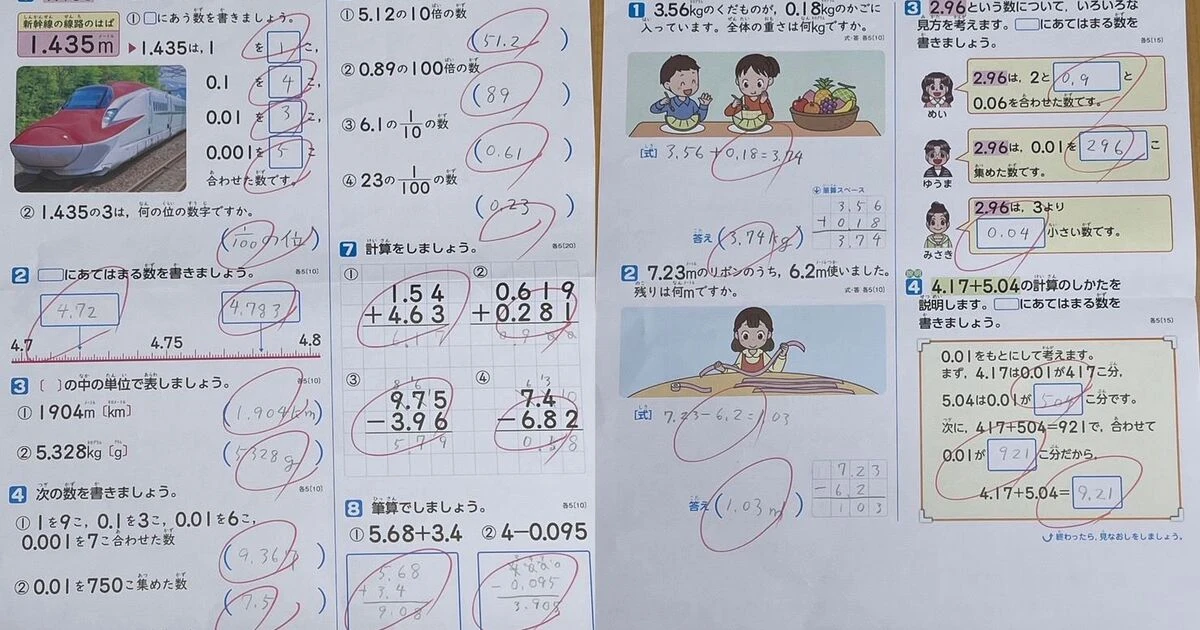 新幹線の線路のはば
1.435m
① □にあう数を書きましょう。
▶1.435は，1を 1 こ，
0.1を 4 こ，
0.01を 3 こ，
0.001を 5 こ
合わせた数です。
② 1.435の3は，何の位の数字ですか。
(1/100の位)
2 □にあてはまる数を書きましょう。 各5[10]
4.72
4.783
4.7 4.75 4.8
3 〔 〕の中の単位で表しましょう。 各5[10]
① 1904m〔km〕
(1.904km)
② 5.328kg〔g〕
(5328g)
4 次の数を書きましょう。 各5[10]
① 1を9こ，0.1を3こ，0.01を6こ，
0.001を7こ合わせた数
② 0.01を750こ集めた数
(7.5)
① 5.12の10倍の数
(51.2)
② 0.89の100倍の数
(89)
③ 6.1の1/10の数
(0.61)
④ 23の1/100の数
(0.23)
7 計算をしましょう。 各5[20]
① ②
1.54
+4.63
0.619
+0.281
③ ④
9.75
−3.96
5.79
7.4
−6.82
8 筆算でしましょう。 各5[10]
① 5.68+3.4 ② 4−0.095
5.68
+3.4
9.08
− 0.095
3.905
1 3.56kgのくだものが，0.18kgのかごに
入っています。全体の重さは何kgですか。
式・答 各5[10]
[式] 3.56+0.18=3.74
筆算スペース
3.56
+0.18
3.74
答え(3.74kg)
2 7.23mのリボンのうち，6.2m使いました。
残りは何mですか。 式・答 各5[10]
[式] 7.23−6.2=1.03
7.23
−6.2
1.03
答え(1.03m)
3 2.96という数について，いろいろな
見方を考えます。□にあてはまる数を
書きましょう。 各5[15]
めい
2.96は，2と 0.9 と
0.06を合わせた数です。
ゆうま
2.96は，0.01を 296 こ
集めた数です。
みさき
2.96は，3より
0.04 小さい数です。
4 4.17+5.04の計算のしかたを
説明します。□にあてはまる数を
書きましょう。 各5[15]
0.01をもとにして考えます。
まず，4.17は0.01が417こ分，
5.04は0.01が 504 こ分です。
次に，417+504=921で，合わせて
0.01が 921 こ分だから，
4.17+5.04= 9.21
終わったら，見なおしをしましょう。